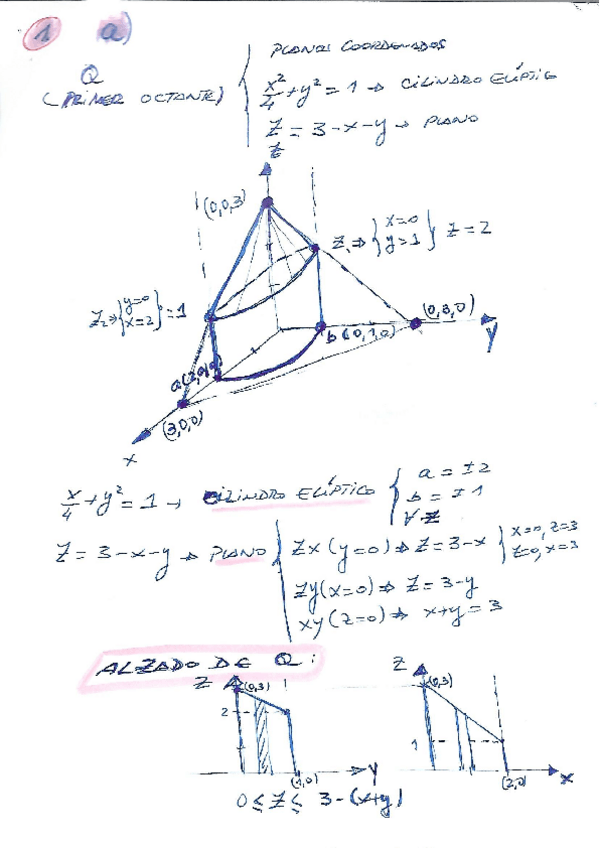 1 a)
Q
(PRIMER OCTANTE)
PLANOS COORDENADOS
x²/4 + y² = 1 → CILINDRO ELÍPTICO
Z = 3-x-y → PLANO
Z
(0,0,3)
Z₁ ⇒ { x=0 y=1 } Z = 2
Z₂ ⇒ { y=0 x=2 } = 1
(0,3,0)
b(0,1,0)
Y
a(2,0,0)
(3,0,0)
x
x/4 + y² = 1 → CILINDRO ELÍPTICO { a = ±2
b = ±1
∀ Z
Z = 3-x-y → PLANO { ZX (y=0) ⇒ Z = 3-x { x=0, Z=3
Z=0, x=3
Zy (x=0) ⇒ Z = 3-y
xy (Z=0) ⇒ x+y = 3
ALZADO DE Q:
Z (0,3)
2
(1,0)
Y
Z
(0,3)
1
(2,0)
x
0 ≤ Z ≤ 3-(x+y)